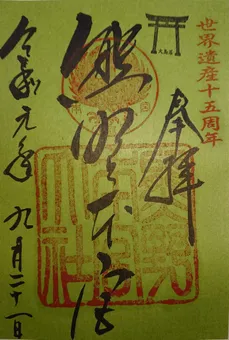 世界遺産十五周年
奉拝
大鳥居
熊野本宮
令和元年九月二十一日